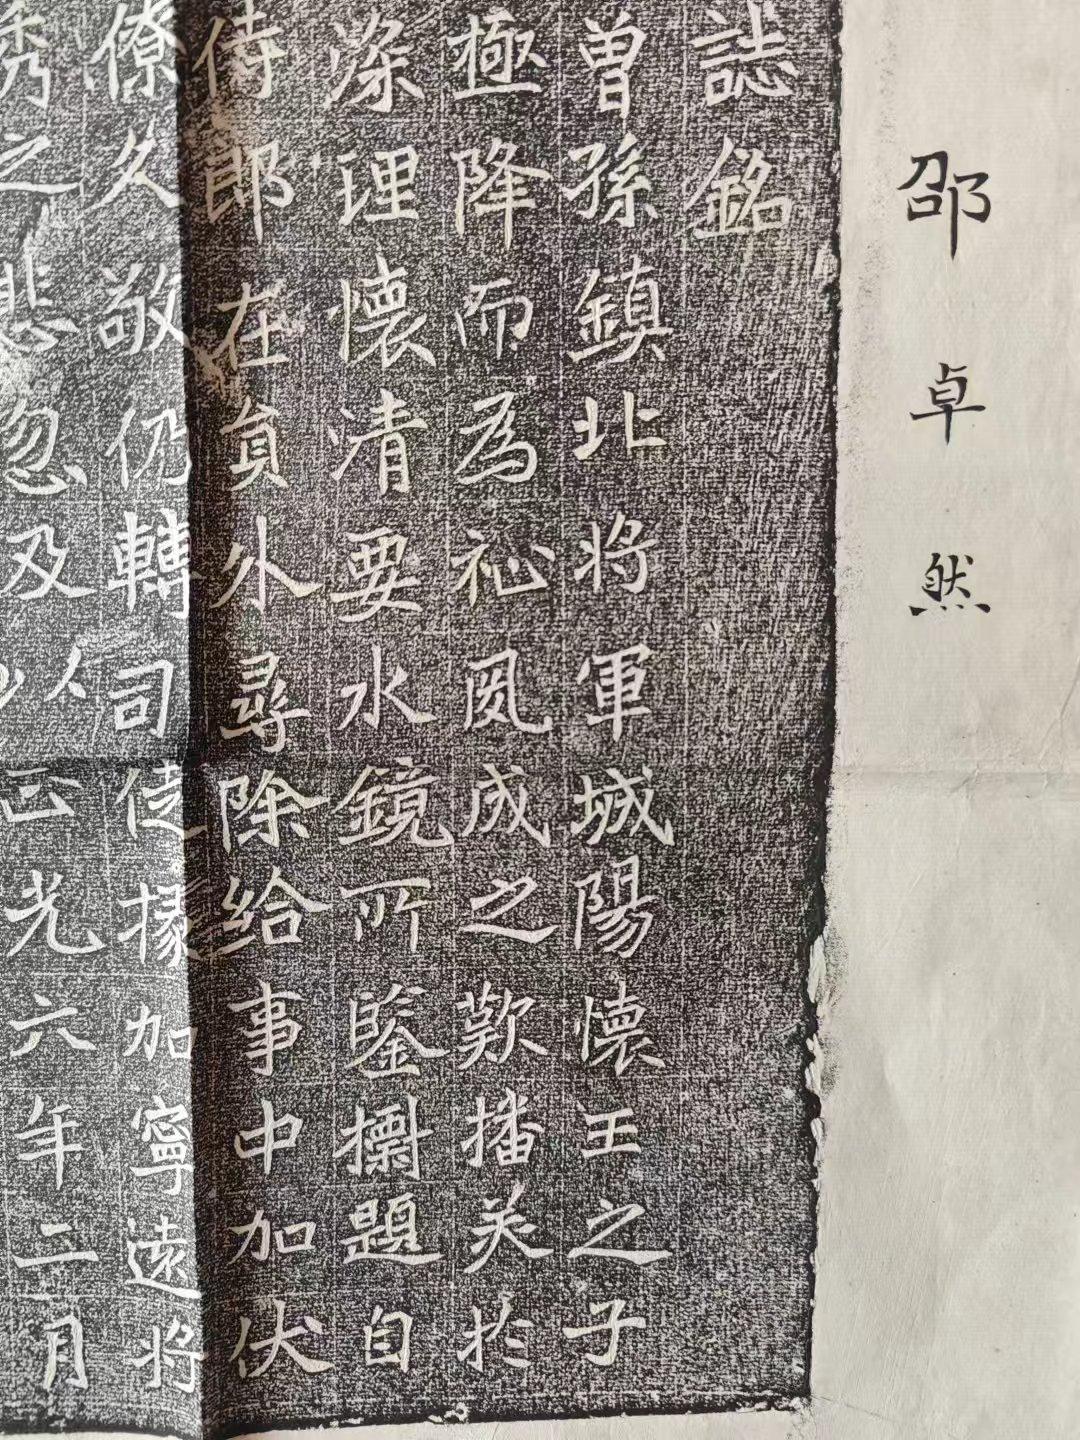 邵卓然
誌銘
曾孫鎮北將軍城陽懷王之子
極降而為祉夙成之歎播美於
深浬懷清要水鏡所鋻擱題自
侍郎在員外尋除給事中加伏
僚久敬仍轉司徒掾加寧遠將
秀之悲忽及以正光六年二月